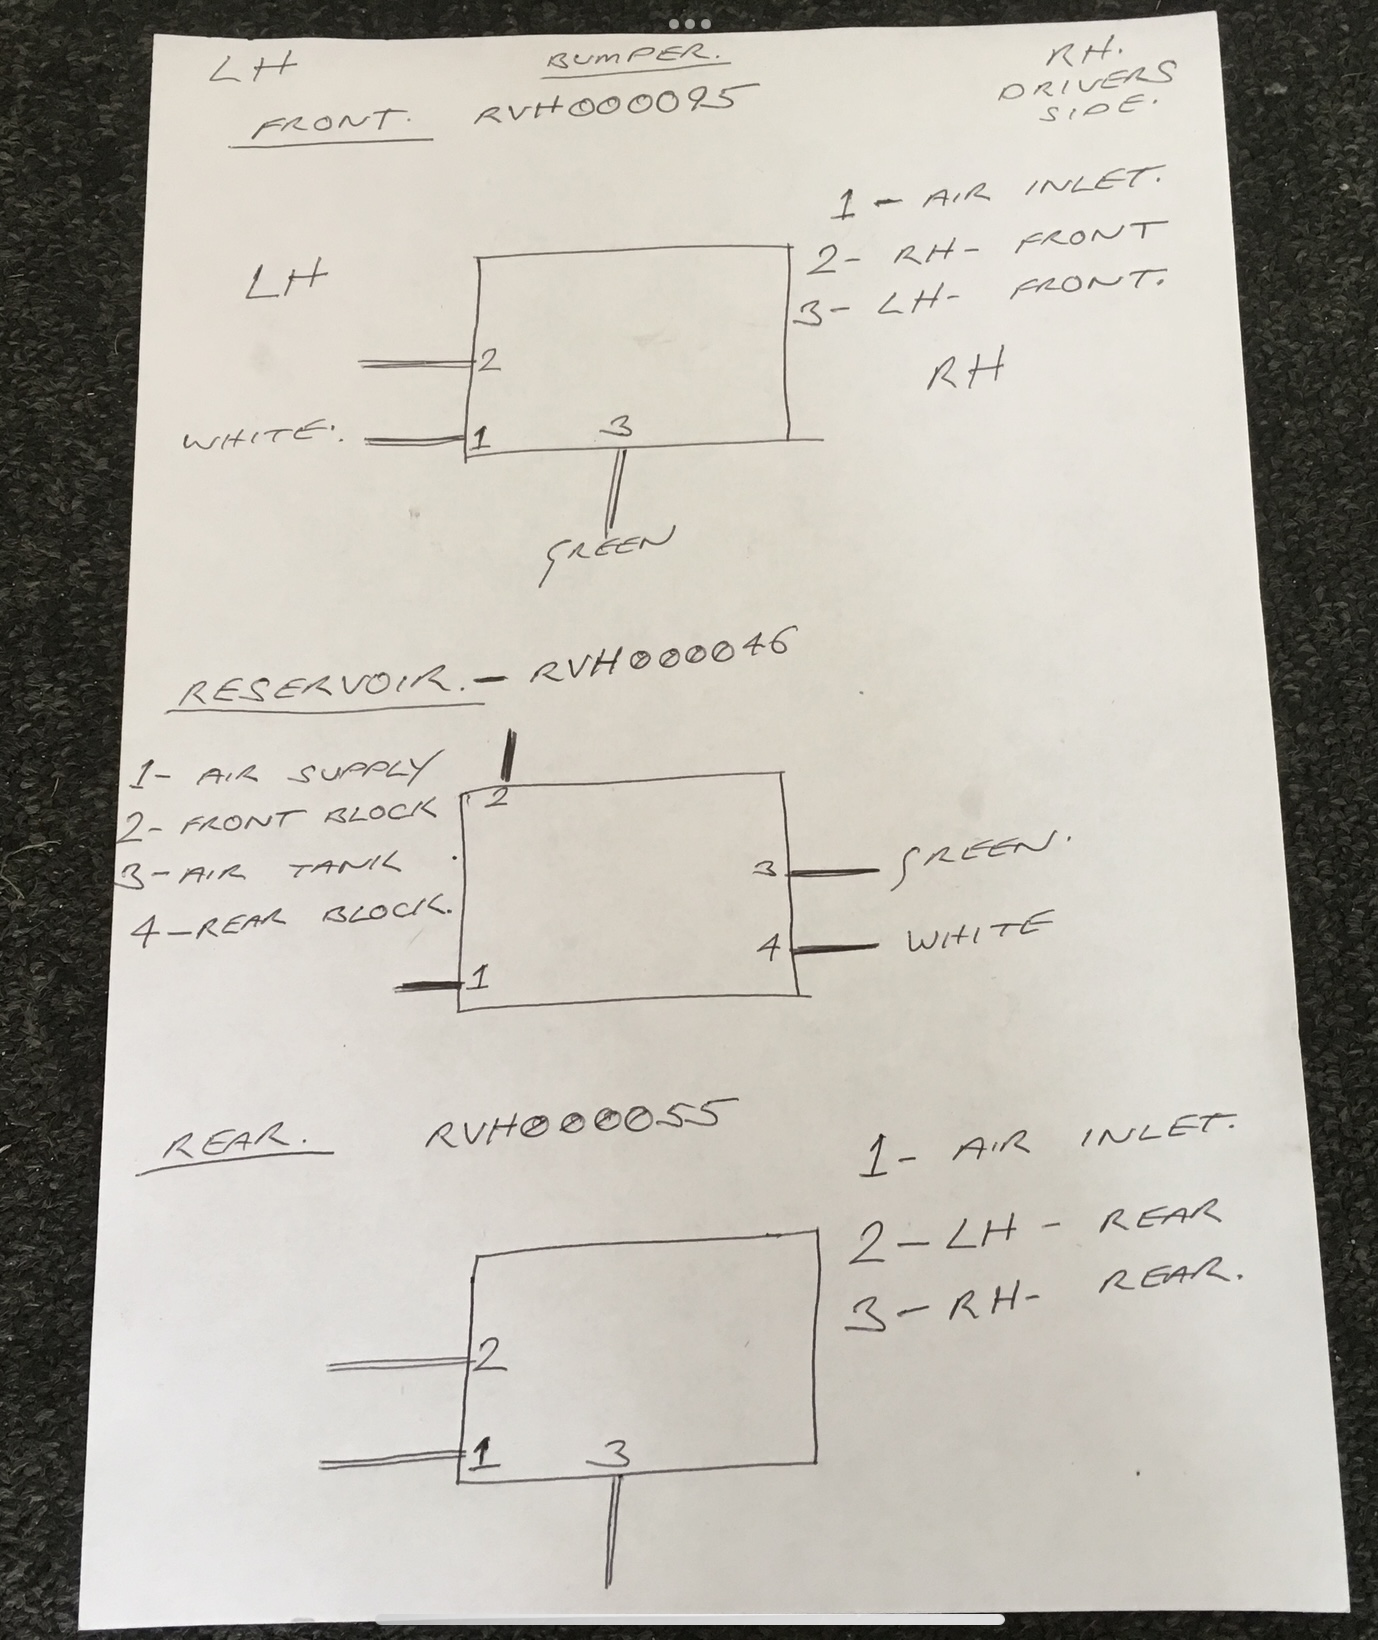 LH
BUMPER.
RH.
DRIVERS
SIDE.
FRONT. RVH000095
1 - AIR INLET.
2- RH- FRONT
3- LH- FRONT.
LH
RH
2
WHITE.
1
3
GREEN
RESERVOIR. - RVH000046
1- AIR SUPPLY
2- FRONT BLOCK
3- AIR TANK
4- REAR BLOCK.
2
3
GREEN.
4
WHITE
1
REAR. RVH000055
1- AIR INLET.
2- LH - REAR
3- RH- REAR.
2
1
3